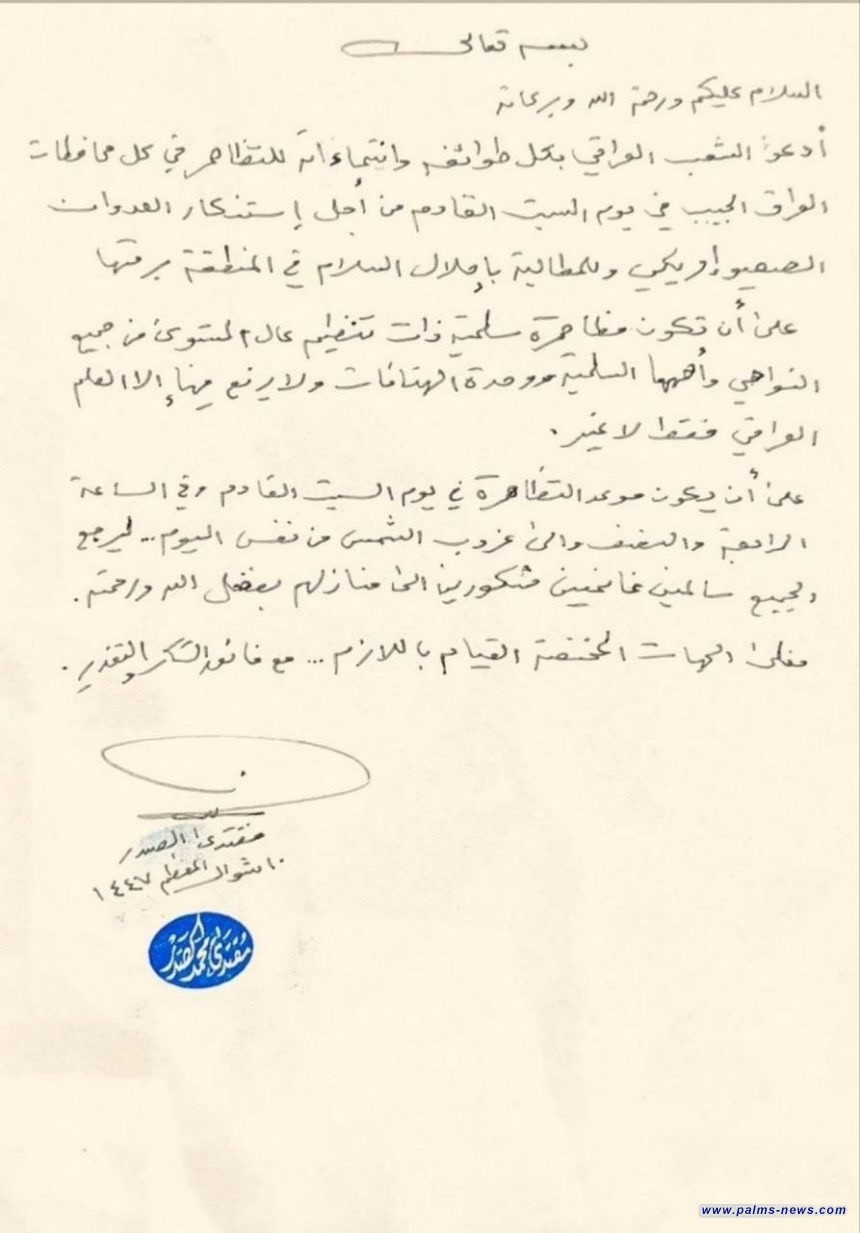 بسمه تعالى
السلام عليكم ورحمة الله وبركاته
أدعو الشعب العراقي بكل طوائفه وانتماءاته للتظاهر في كل محافظات
العراق الحبيب في يوم السبت القادم من أجل إستنكار العدوان
الصهيوأمريكي وللمطالبة بإحلال السلام في المنطقة برمتها
على أن تكون مظاهرة سلمية ذات تنظيم عال المستوى من جميع
النواحي وأهمها السلمية ووحدة الهتافات ولا يرفع فيها إلا العلم
العراقي فقط لا غير .
على أن يكون موعد التظاهرة في يوم السبت القادم وفي الساعة
الرابعة والنصف والى غروب الشمس من نفس اليوم .. ليرجع
الجميع سالمين غانمين مشكورين الى منازلهم بفضل الله ورحمته .
فعلى الجهات المختصة القيام باللازم ... مع فائق الشكر والتقدير .
مقتدى الصدر
١٠ شوال المعظم ١٤٤٧
مقتدى محمد الصدر
www.palms-news.com